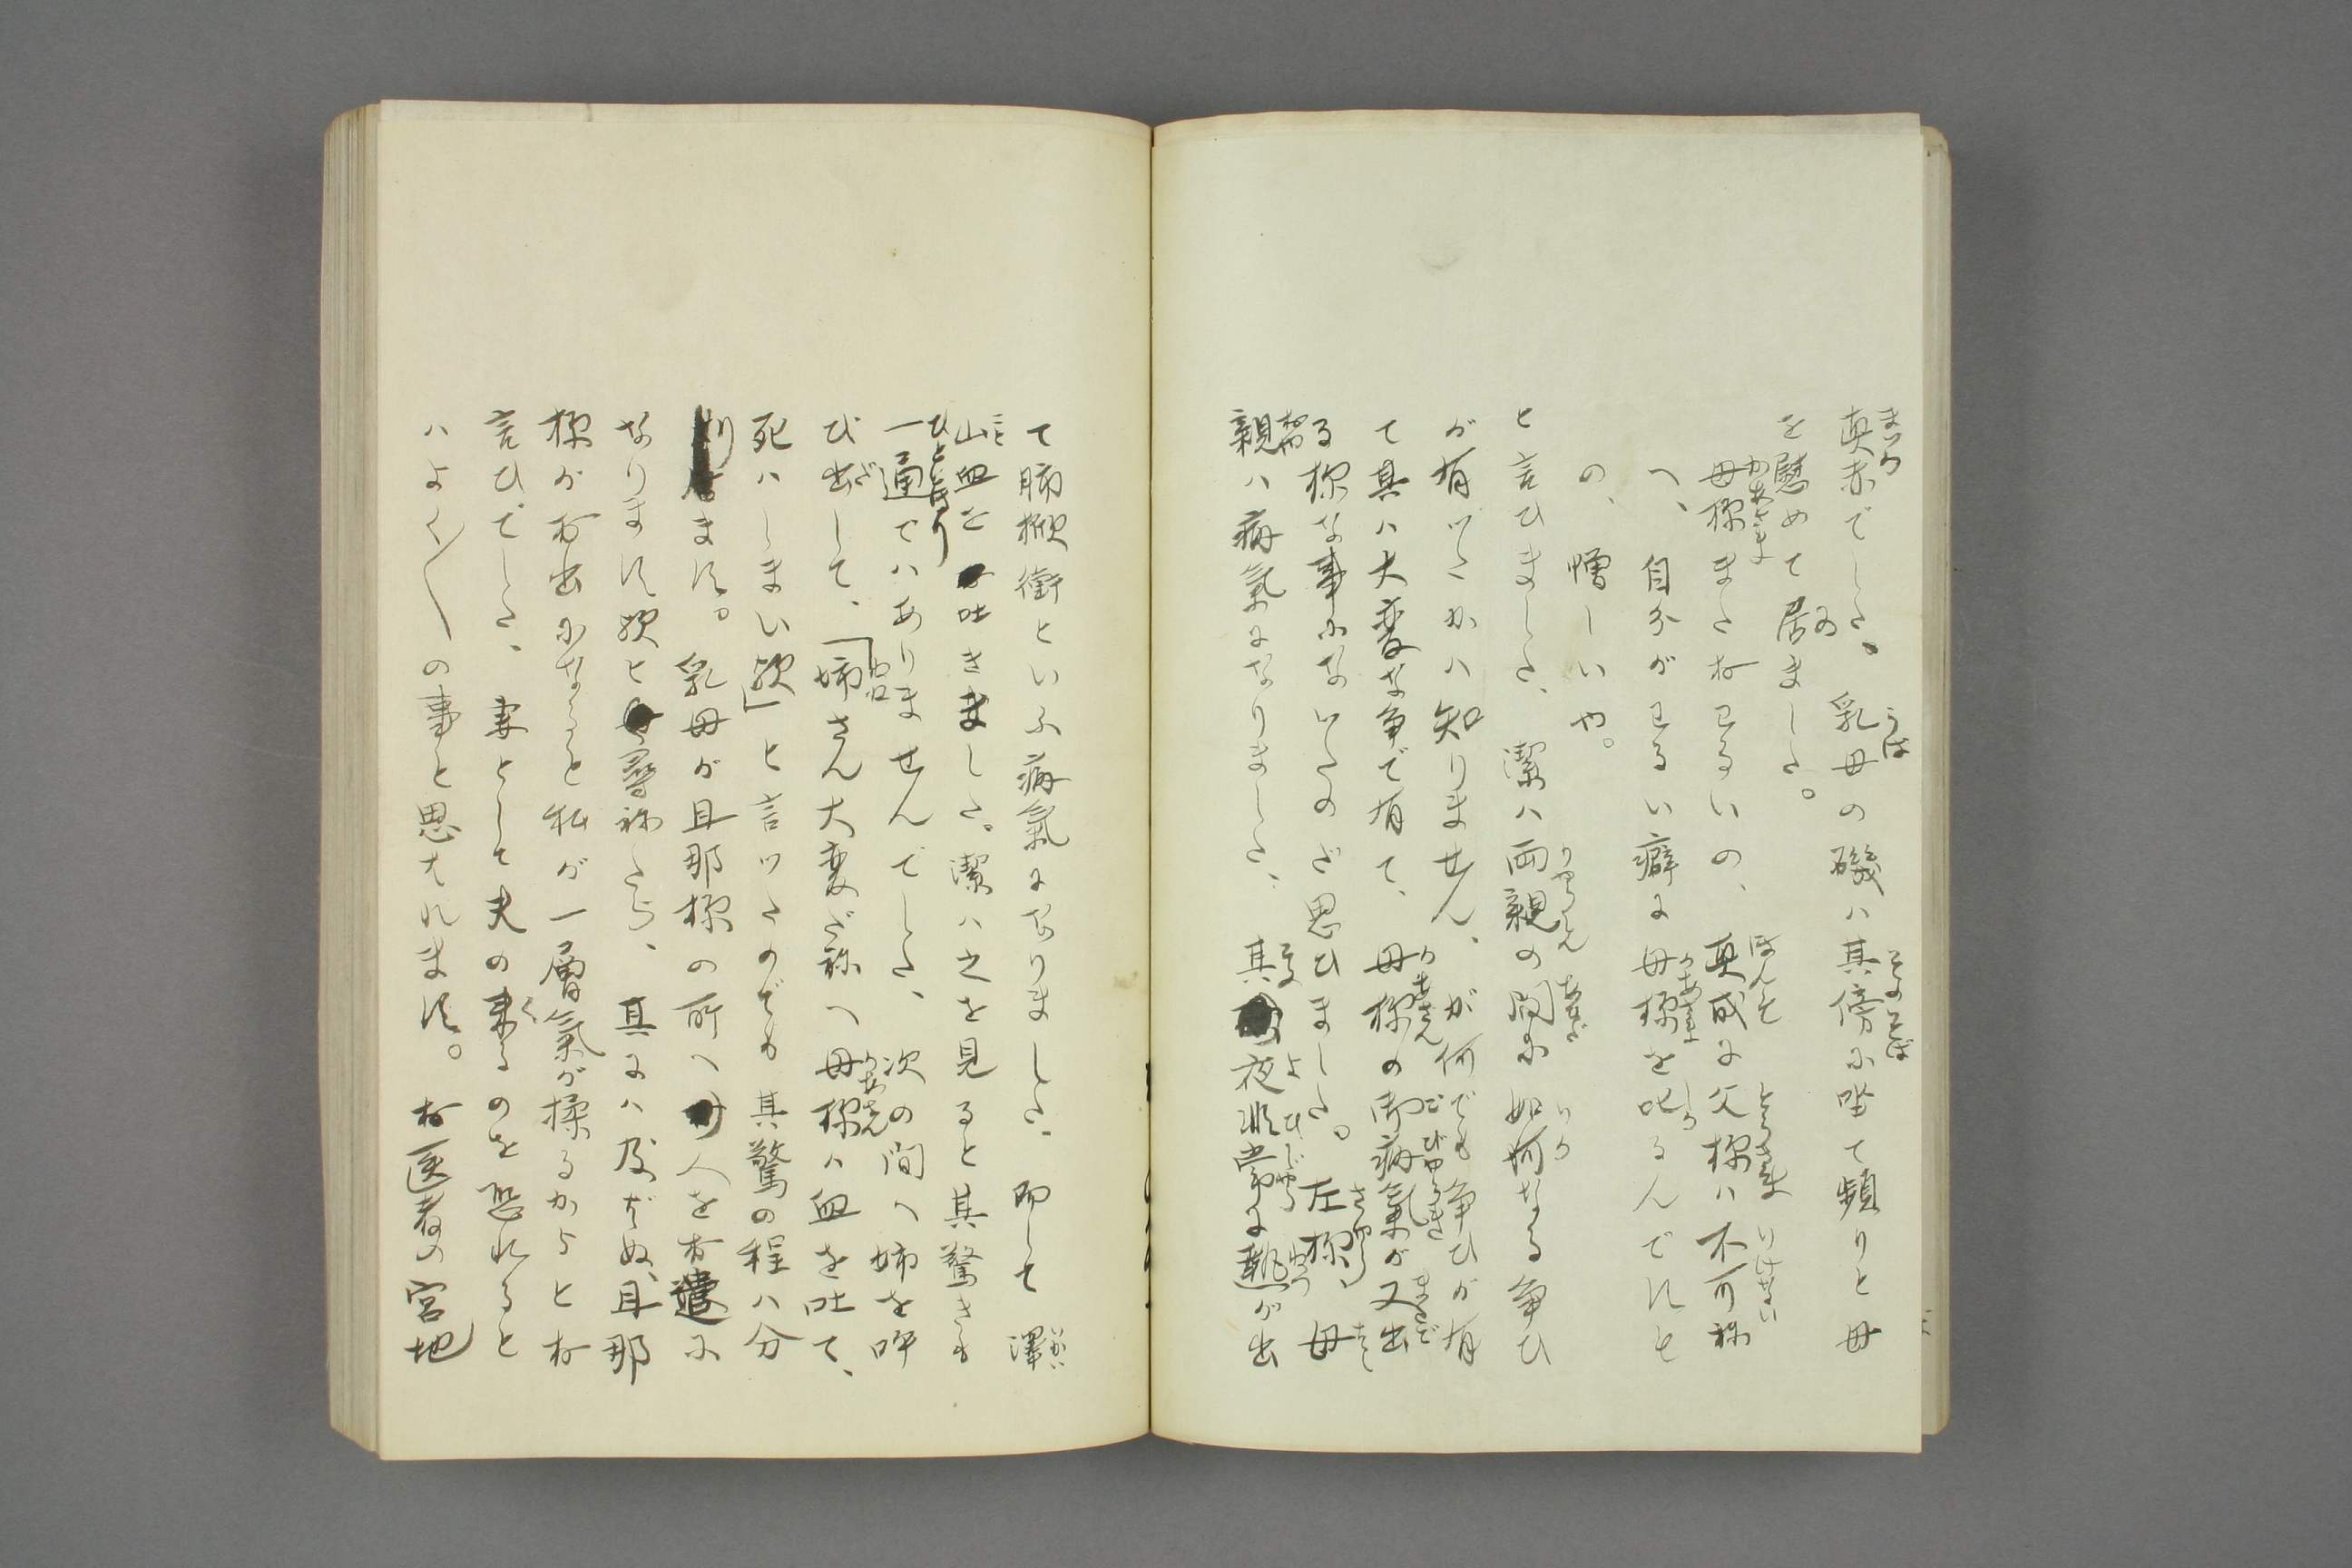 真赤でした、乳母の磯ハ其傍に坐て頻りと母
を慰めて居ました。
母様またおわるいの、真成に父様ハ不可ね
へ、自分がわるい癖に母様を叱るんですと
の、憎しいや。
と言ひました、潔ハ両親の間に如何なる争ひ
が有ツたかハ知りません、が何でも争ひが有
て其ハ大変な争で有て、母様の御病氣が又出
る様な事になツたのだ思ひました。左様、母
親ハ病氣になりました、其夜非常に熱が出
て肺掀衝といふ病氣になりました、而して澤
山血を吐きました。潔ハ之を見ると其驚きハ
一通でハありませんでした、次の間へ姉を呼
び出して、「姉さん大変だねへ母様ハ血を吐て、
死ハしまい歟」と言ツたのでも其驚の程ハ分
ります。乳母が旦那様の所へ人をお遣に
なります歟と尋ねたら、其にハ及ばぬ、旦那
様がお出になると私が一層氣が揉るからとお
言ひでした、妻として夫の来るのを恐れると
ハよく／＼の事と思はれます。お医者の宮地